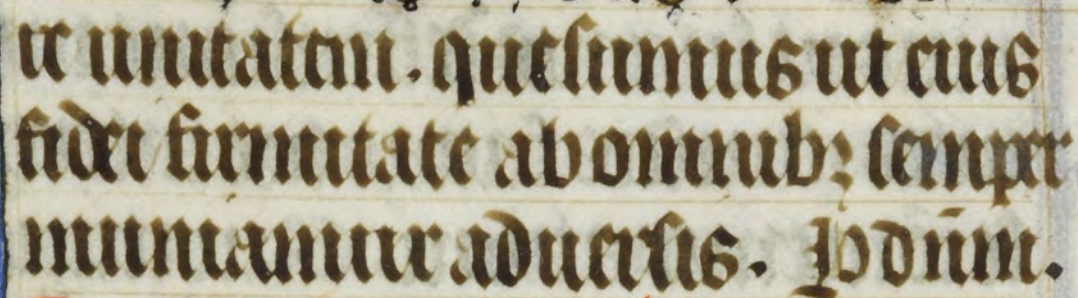 re unitatem. quesumus ut eius
fidei firmitate ab omnibꝫ semper
muniamur aduersis. P dn̄m.